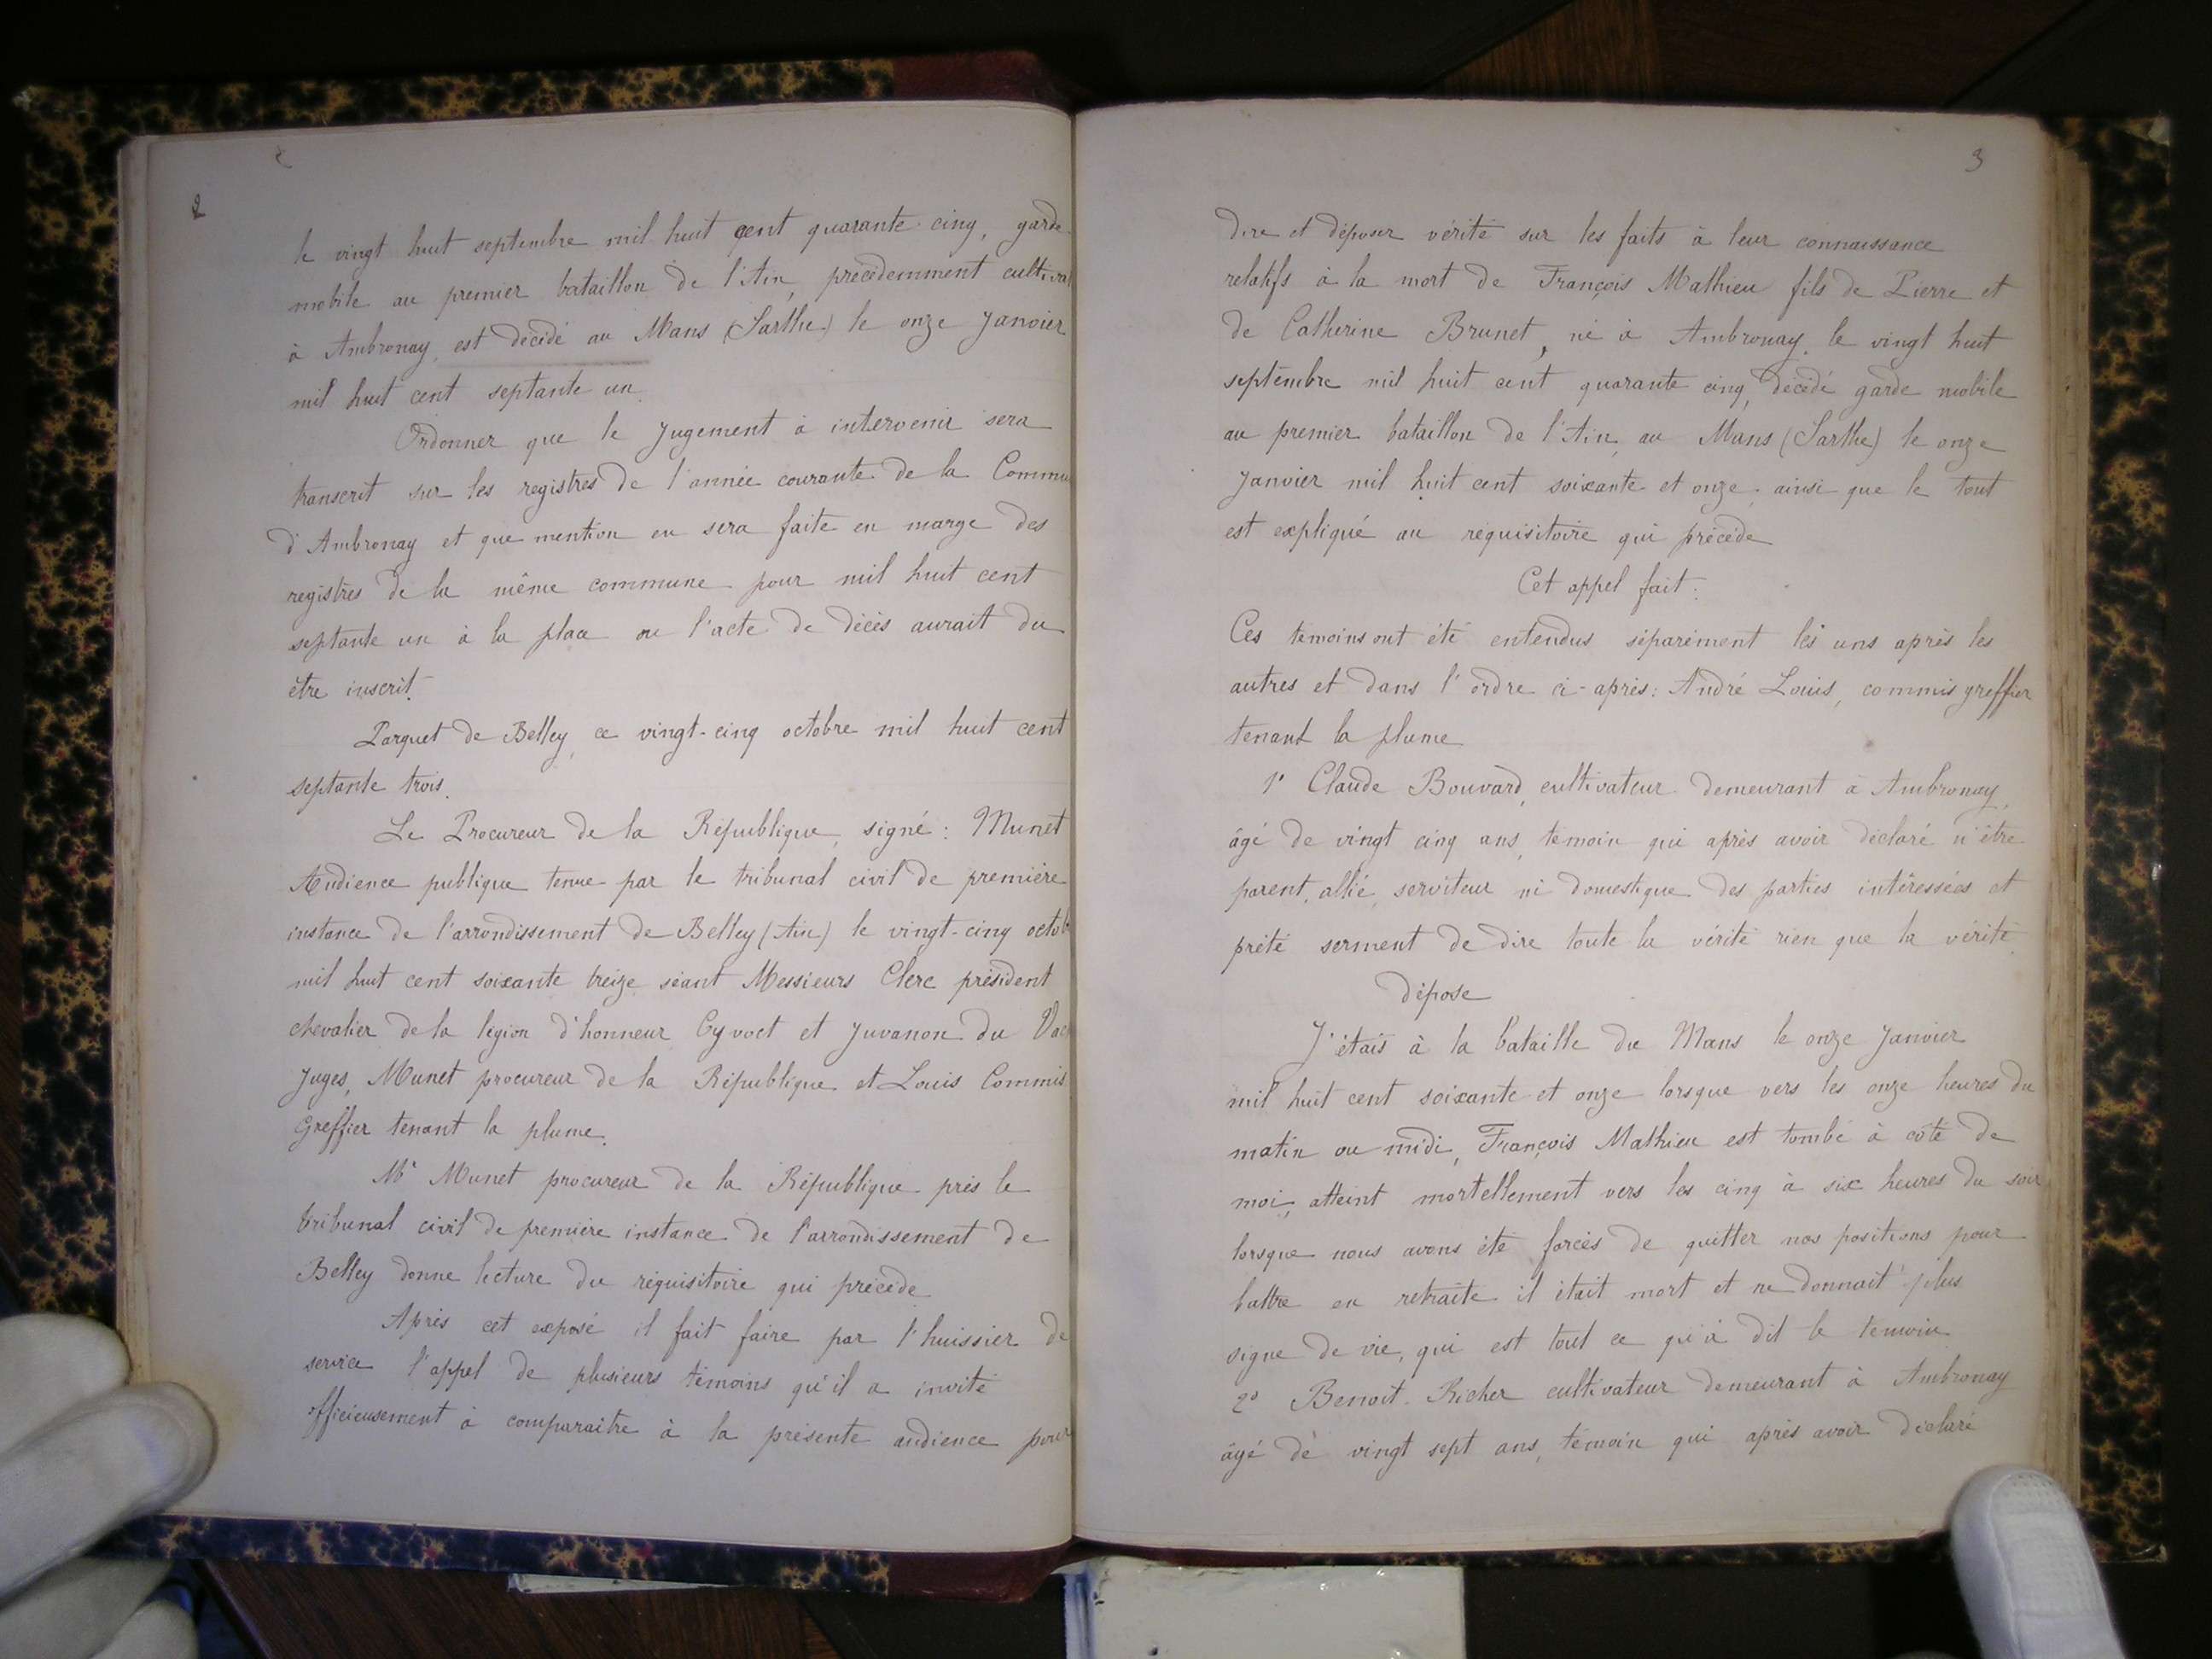 2
le vingt huit septembre mil huit cent quarante cinq, garde
mobile au premier bataillon de l'Ain, précédemment cultiva
à Ambronay, est décédé au Mans (Sarthe) le onze Janvier
mil huit cent septante un.
Ordonner que le Jugement à intervenir sera
transcrit sur les registres de l'année courante de la Commu
d'Ambronay et que mention en sera faite en marge des
registres de la même commune pour mil huit cent
septante un à la place ou l'acte de décès aurait du
être inscrit.
Parquet de Belley, ce vingt-cinq octobre mil huit cent
septante trois.
Le Procureur de la République, signé : Munet
Audience publique tenue par le tribunal civil de première
instance de l'arrondissement de Belley (Ain) le vingt-cinq octob
mil huit cent soixante treize séant Messieurs Clerc président
chevalier de la légion d'honneur Cyvoct et Juvanon du Vac
Juges, Munet procureur de la République et Louis Commis
Greffier tenant la plume.
Mr Munet procureur de la République près le
tribunal civil de première instance de l'arrondissement de
Belley donne lecture du réquisitoire qui précède
Après cet exposé il fait faire par l'huissier de
service l'appel de plusieurs témoins qu'il a invité
officieusement à comparaitre à la présente audience pour
3
dire et déposer vérité sur les faits à leur connaissance
relatifs à la mort de François Mathieu fils de Pierre et
de Catherine Brunet, né à Ambronay, le vingt huit
septembre mil huit cent quarante cinq, décédé garde mobile
au premier bataillon de l'Ain, au Mans (Sarthe) le onze
Janvier mil huit cent soixante et onze, ainsi que le tout
est expliqué au réquisitoire qui précède
Cet appel fait :
Ces témoins ont été entendus séparément les uns après les
autres et dans l'ordre ci-après : André Louis, commis greffier
tenant la plume
1° Claude Bouvard, cultivateur demeurant à Ambronay,
âgé de vingt cinq ans, témoin qui après avoir déclaré n'être
parent, allié, serviteur ni domestique des parties intéressées et
prêté serment de dire toute la vérité rien que la vérité
dépose
J'étais à la bataille du Mans le onze Janvier
mil huit cent soixante et onze lorsque vers les onze heures du
matin ou midi, François Mathieu est tombé à côté de
moi, atteint mortellement vers les cinq à six heures du soir
lorsque nous avons été forcés de quitter nos positions pour
battre en retraite il était mort et ne donnait plus
signe de vie, qui est tout ce qu'à dit le temoin
2° Benoit Richer cultivateur demeurant à Ambronay
âgé de vingt sept ans, témoin qui après avoir déclaré